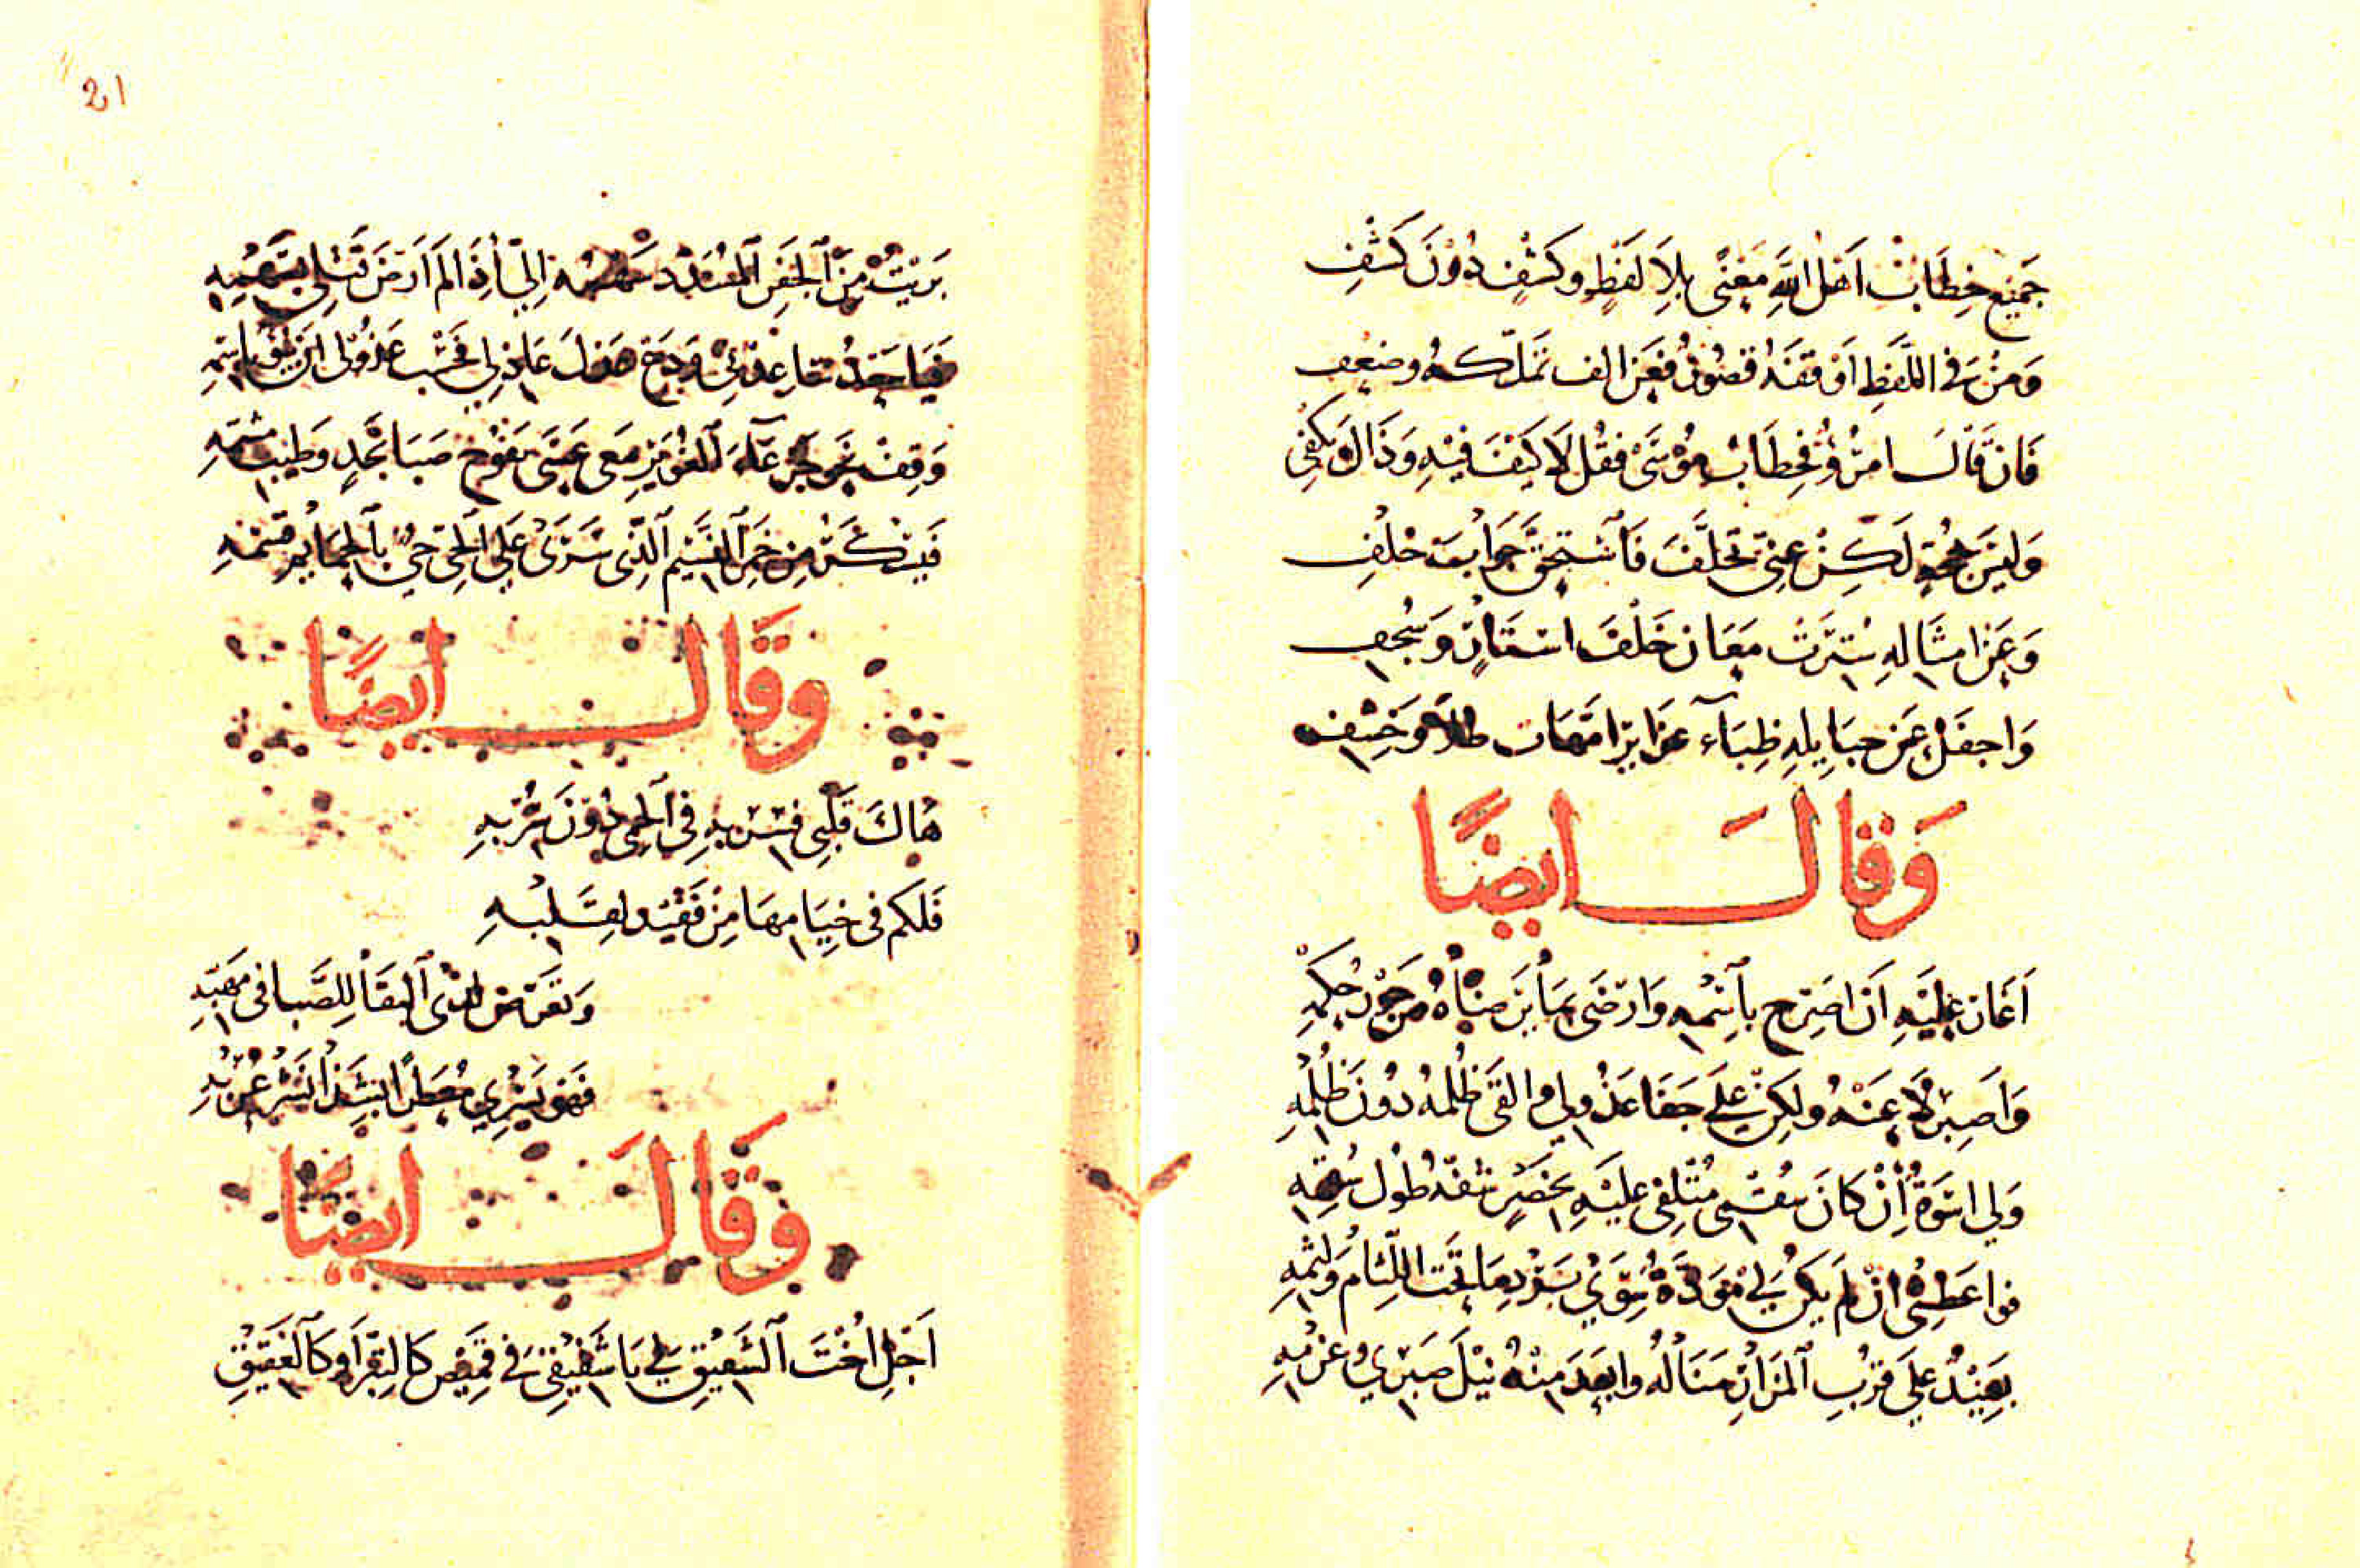 جَمِيع خِطَابَاتْ اَهْل اللّهِ مَعْنًى بِلَا لَفْظٍ وكَشْفٍ دُوْنَ كَشْفِ
وَمَنْ فِى اللَّفْظِ اَوْقَفَهُ قصُورٌ فعَن الف تمَلّكه وضعف
فَانْ قَالَ امْرُؤٌ فخِطَابْ مُوْسَى فقُل لَا كَيْفَ فِيْهِ وَذَاكَ يَكْفِى
وَلِيَ حُجَّة لَكِنْ عنِّى تخلَّفَ فَاسْتَحَقَّ جَوَاب خلْفِ
وَعَن امثَالِهِ سُتِرَتْ مَعَان خَلْفَ استَارٍ وَسُجف
وَاجفَل عَن حبَايلِهِ ظِبَآء امَّهَات طلاً وَخِشف
وَقَالَ ايضًا
اَغَان عَلَيْهِ اَنْ اصَرِّح بِاسْمِهِ وَارضَى بمَا يَرضَاهُ من جَوْر حُكمِهِ
وَاَصبرُ لَا عَنْهُ ولَكِنْ عَلَى جَفَا عَذُولِى والقَى ظُلمهُ دُونَ ظَلْمِهِ
وَلِى اسْوَةٌ اِنْ كَانَ سُقْمِى مُتْلِفِى عَلَيْهِ بخصْرٍ شفّهُ طُول سُقمِهِ
فوا عطشِى ان لَم يكُن لِى مَوْرِدٌ سِوَى بَرْد مَا تحْتَ اللِّثَام وَلثمِهِ
بَعِيْدٌ عَلَى قرْبِ المَزَارِ مَنَالُهُ وابعَدَ مِنْهُ نَيْلَ صَبْرِي وعَزْمِهِ
21
بَرئتُ مِنَ الجَفنِ المسَدَّد سَهْمُه اِلَىَّ اِذَا لَم اَرضَ قَتْلِى بسَهْمِهِ
وَدَعْ عَذْلَ عَاذِلِى فحَسْب عَذُولِى باِسْمِهِ
وَقِفْ نَحْوَ العُذَيبِ مَعِى عَسَى يَفُوْح صَبَا نَجْدٍ وَطِيْب مشمّهِ
فَيَسْكَرُ مِنْ خَمْرِ النَّسِيْم الَّذِى سَرَى عَلَى الحَىّ حَىٌّ بِالحِمَا
وَقَال ايضًا
هَاكَ قَلْبِى فسِر بِهِ فِى الحِمى دُوْنَ سِرْبِهِ
فَلَكم فى خِيَامِهَا مِنْ فَقِيْدٍ لِقَلْبِهِ
وَتَعَرّض لَدَى النقَا لِلصَّبا فى مَهَبِّهِ
فهْوَ يَسْرِي مُعَطَّرًا بِشَذَا نَشْر عُرْبِهِ
وَقَال ايضًا
اَجْلِ اُخْتَ الشَّقِيْقِ لِى يَا شَقِيْقِى فِى قَمِيْص كَالتِّبْر اَو كَالعَقِيْقِ